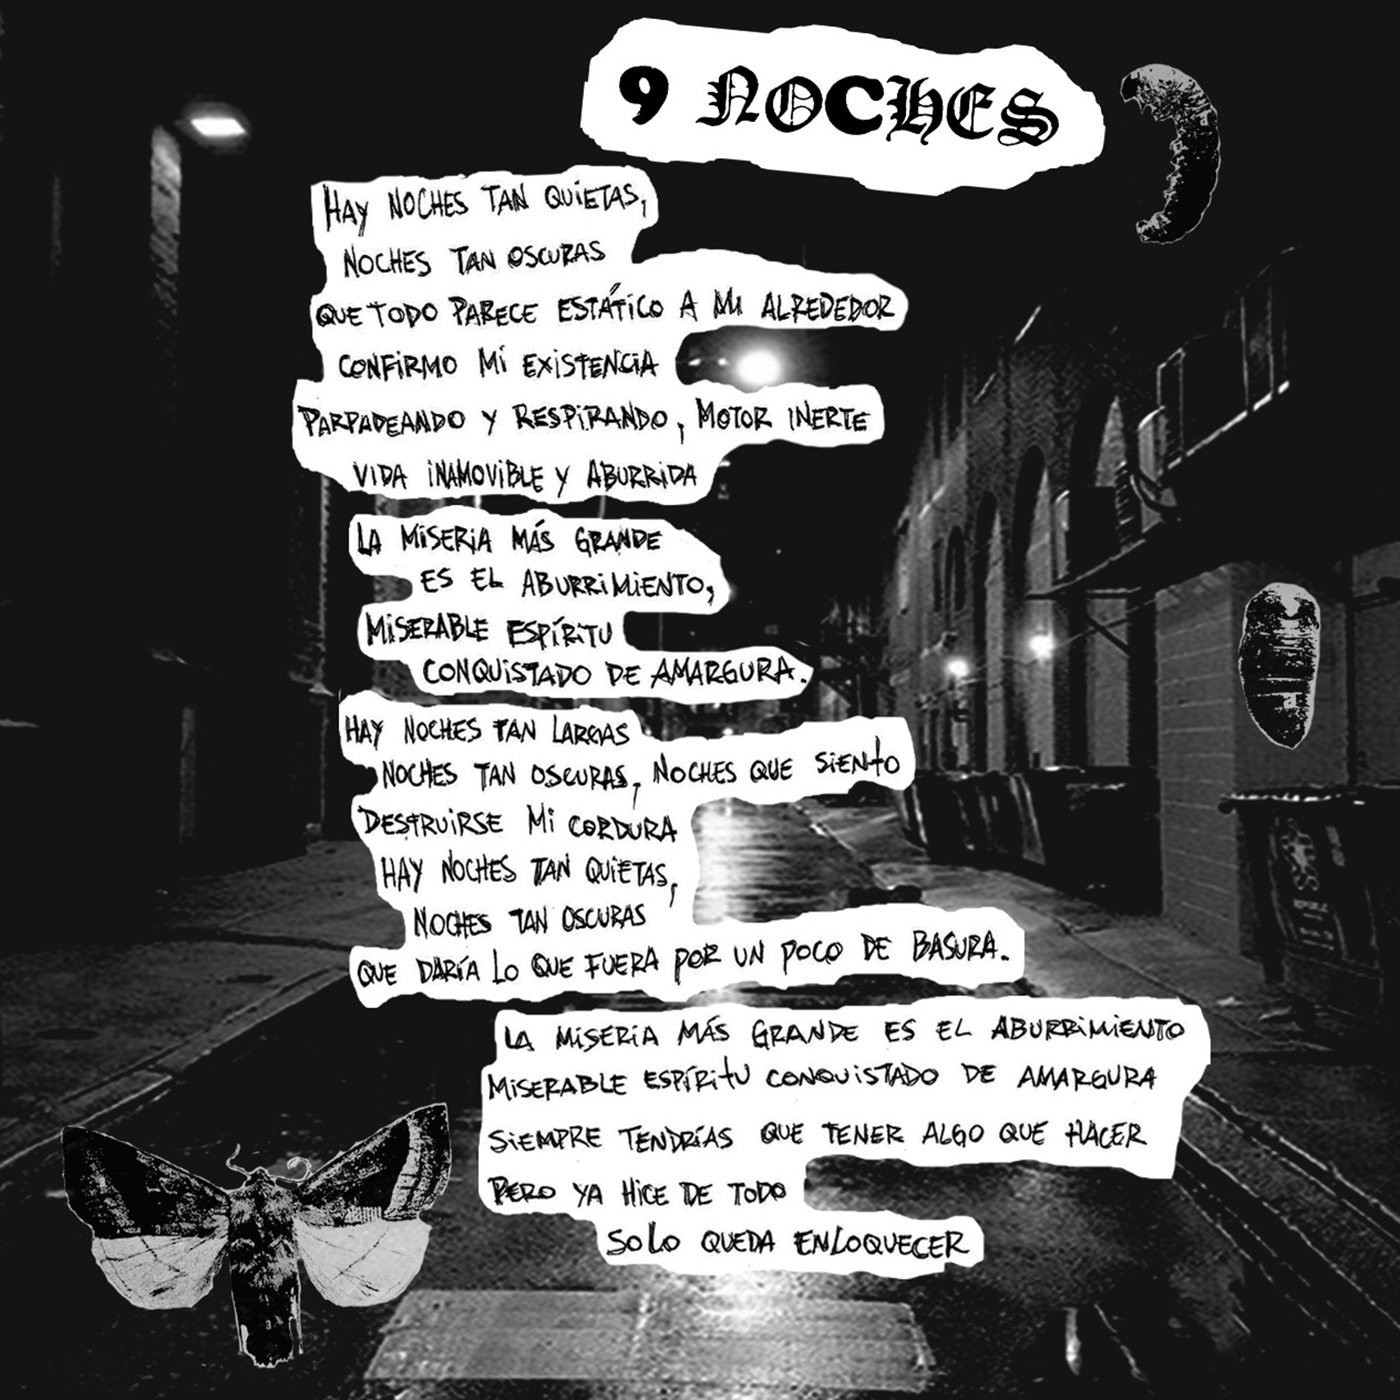 9 NOCHES
HAY NOCHES TAN QUIETAS,
NOCHES TAN OSCURAS
QUE TODO PARECE ESTÁTICO A MI ALREDEDOR
CONFIRMO MI EXISTENCIA
PARPADEANDO Y RESPIRANDO, MOTOR INERTE
VIDA INAMOVIBLE Y ABURRIDA
LA MISERIA MÁS GRANDE
ES EL ABURRIMIENTO,
MISERABLE ESPÍRITU
CONQUISTADO DE AMARGURA.
HAY NOCHES TAN LARGAS
NOCHES TAN OSCURAS, NOCHES QUE SIENTO
DESTRUIRSE MI CORDURA
HAY NOCHES TAN QUIETAS,
NOCHES TAN OSCURAS
QUE DARÍA LO QUE FUERA POR UN POCO DE BASURA.
LA MISERIA MÁS GRANDE ES EL ABURRIMIENTO
MISERABLE ESPÍRITU CONQUISTADO DE AMARGURA
SIEMPRE TENDRÍAS QUE TENER ALGO QUE HACER
PERO YA HICE DE TODO
SOLO QUEDA ENLOQUECER